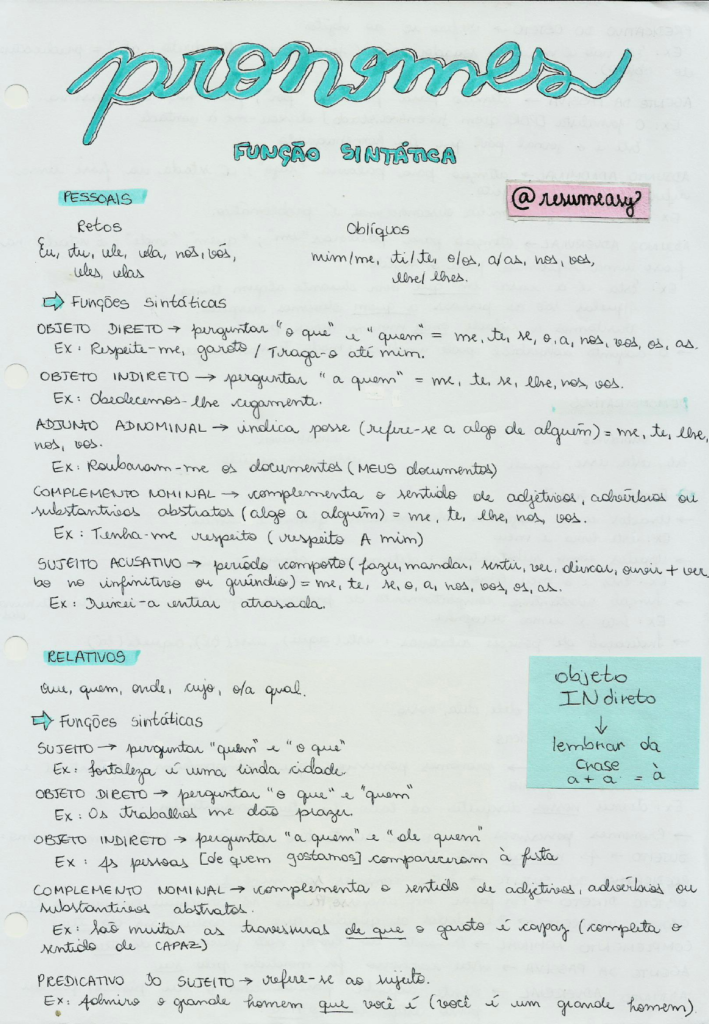 pronomes
FUNÇÃO SINTÁTICA
PESSOAIS
@resumeasy
Retos
Oblíquos
Eu, tu, ele, ela, nós, vós,
eles, elas
mim/me, ti/te, o/os, a/as, nos, vos,
lhe/lhes.
⇨ Funções sintáticas
OBJETO DIRETO → perguntar "o que" e "quem" = me, te, se, o, a, nos, vos, os, as.
Ex: Respeite-me, garoto / Traga-o até mim.
OBJETO INDIRETO → perguntar "a quem" = me, te, se, lhe, nos, vos.
Ex: Obedecemos-lhe cegamente.
ADJUNTO ADNOMINAL → indica posse (refere-se a algo de alguém) = me, te, lhe,
nos, vos.
Ex: Roubaram-me os documentos (MEUS documentos)
COMPLEMENTO NOMINAL → complementa o sentido de adjetivos, advérbios ou
substantivos abstratos (algo a alguém) = me, te, lhe, nos, vos.
Ex: Tenha-me respeito (respeito A mim)
SUJEITO ACUSATIVO → período composto (fazer, mandar, sentir, ver, deixar, ouvir + ver
bo no infinitivo ou gerúndio) = me, te, se, o, a, nos, vos, os, as.
Ex: Deixei-a entrar atrasada.
RELATIVOS
Que, quem, onde, cujo, o/a qual.
⇨ Funções sintáticas
objeto
INdireto
↓
lembrar da
crase
a + a = à
SUJEITO → perguntar "quem" e "o que"
Ex: Fortaleza é uma linda cidade.
OBJETO DIRETO → perguntar "o que" e "quem"
Ex: Os trabalhos me dão prazer.
OBJETO INDIRETO → perguntar "a quem" e "de quem"
Ex: As pessoas [de quem gostamos] compareceram à festa
COMPLEMENTO NOMINAL → complementa o sentido de adjetivos, advérbios ou
substantivos abstratos.
Ex: São muitas as travessuras de que o garoto é capaz (completa o
sentido de CAPAZ)
PREDICATIVO DO SUJEITO → refere-se ao sujeito.
Ex: Admiro o grande homem que você é (você é um grande homem)